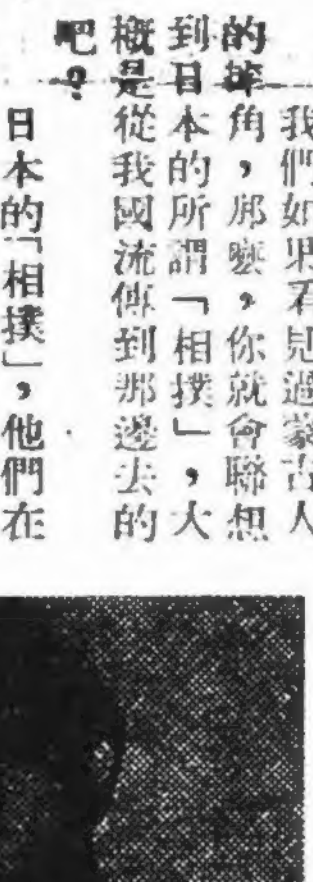 我們如果看見過蒙古人
的摔角，那麼，你就會聯想
到日本的所謂「相撲」，大
概是從我國流傳到那邊去的
吧？
日本的「相撲」，他們在